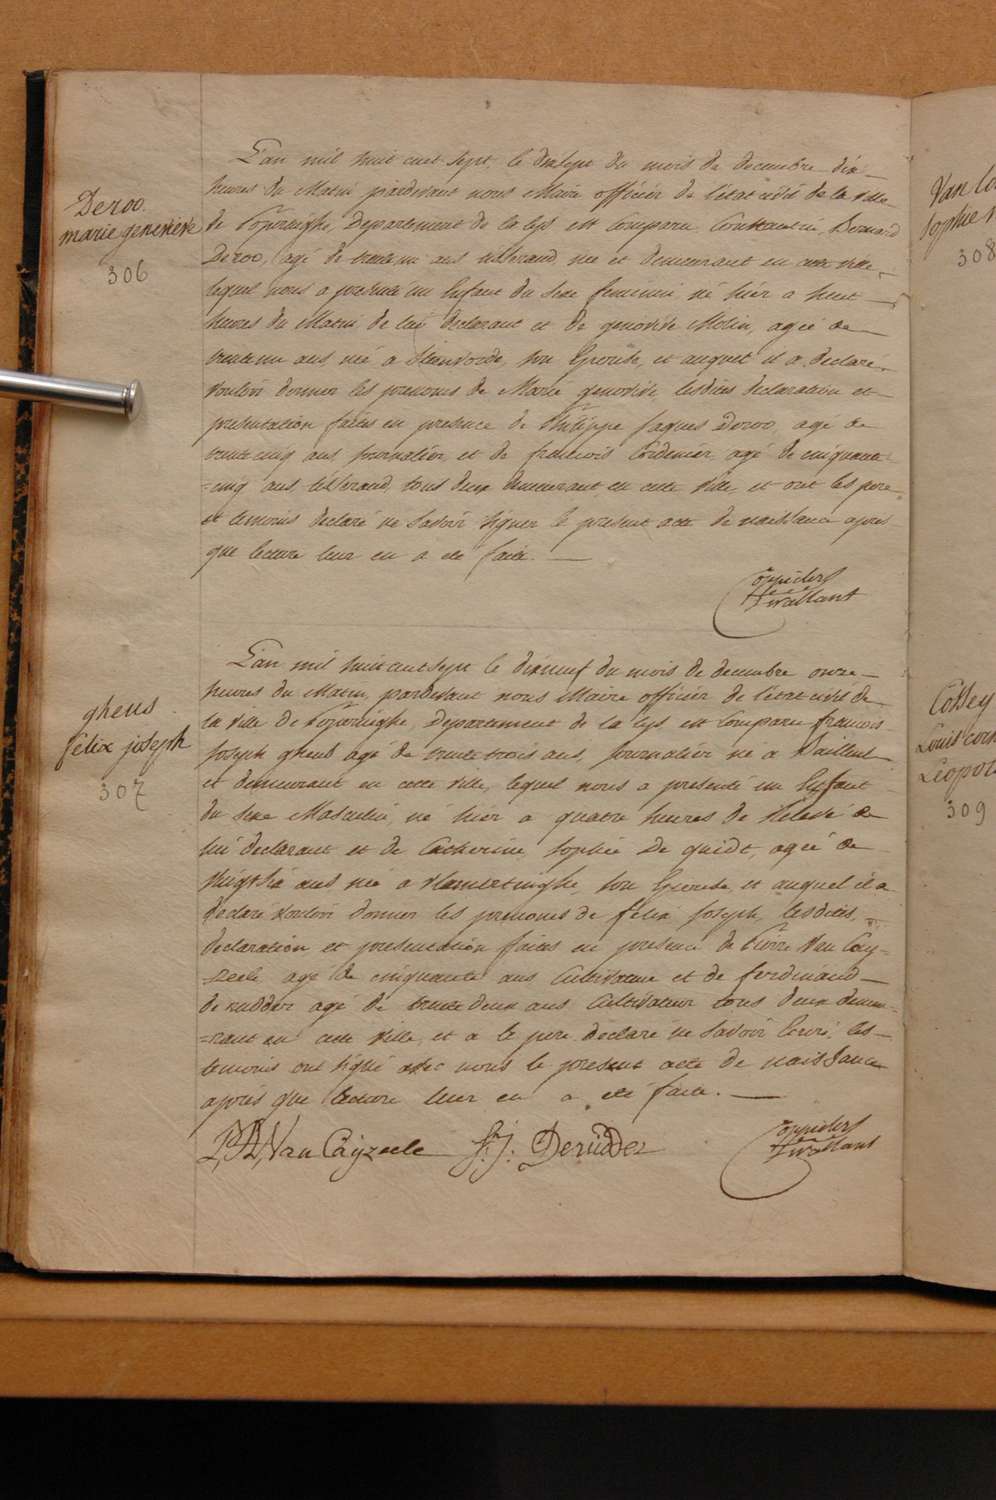 Deroo
marie genevieve
306
L'an mil huit cent sept le dixsept du mois de decembre dix
heures du Matin pardevant nous Maire officier de l'etat civil de la ville
de Poperinghe, Departement de la Lys est comparu Constantin Bernard
Deroo, agé de trente un ans tisserand née et demeurant en cette ville,
lequel nous a presenté un Enfant du sexe feminin né hier a huit
heures du Matin de lui declarant et de genevieve Molin, agée de
trente un ans née a Steenvorde, son Epouse, et auquel il a declaré
vouloir donner les prenoms de Marie genevieve lesdites declaration et
presentation faites en presence de Philippe Jaques Deroo, agé de
trente cinq ans journalier, et de francois Cordenier agé de cinquante
=cinq ans, tisserand, tous deux demeurant en cette ville, et ont les pere
et temoins declaré ne savoir signer le present acte de naissance après
que lecture leur en a été faite.
gheus
félix joseph
307
L'an mil huit cent sept le dixneuf du mois de decembre onze
heures du Matin, pardevant nous Maire officier de l'etat civil de
la ville de Poperinghe, Departement de la Lys est comparu francois
Joseph gheus agé de trente trois ans, journalier né a Bailleul
et demeurant en cette ville, lequel nous a presenté un Enfant
du sexe Masculin, né hier a quatre heures de relevé de
lui declarant et de Catherine Sophie De quidt, agée de
vingt six ans née a Vlamertinghe, son Epouse, et auquel il a
declaré vouloir donner les prenoms de félix Joseph, lesdites
declaration et presentation faites en presence de Pierre Van Cay=
=zeele agé de cinquante ans Cultivateur et de ferdinand
de rudder agé de trente deux ans Cultivateur tous deux demeu=
=rant en cette ville, et a le pere declaré ne savoir Ecrire, les
temoins ont signé avec nous le present acte de naissance
après que lecture leur en a été faite.
Van Cayzeele f. J. Derudder
Van
Sophie
308
Cossey
Louis
Leopold
309